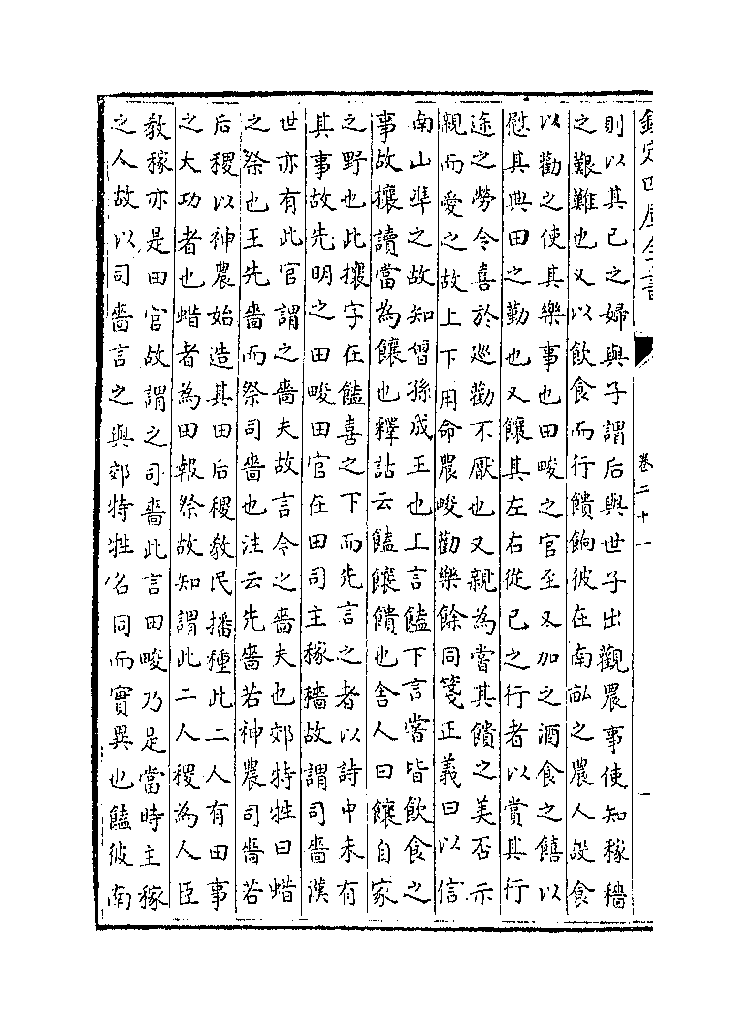 欽定四庫全書
卷二十一
則以其已之婦與子謂后與世子出觀農事使知稼穡
之艱難也又以飲食而行饋餉彼在南畝之農人設食
以勸之使其樂事也田畯之官至又加之酒食之饎以
慰其典田之勤也又饟其左右從已之行者以賞其行
途之勞令喜於巡勸不厭也又親為嘗其饋之美否示
親而愛之故上下用命農畯勸樂餘同箋正義曰以信
南山準之故知曾孫成王也上言饁下言嘗皆飲食之
事故攘讀當為饟也釋詁云饁饟饋也舍人曰饟自家
之野也此攘字在饁喜之下而先言之者以詩中未有
其事故先明之田畯田官在田司主稼穡故謂司嗇漢
世亦有此官謂之嗇夫故言今之嗇夫也郊特牲曰蜡
之祭也王先嗇而祭司嗇也注云先嗇若神農司嗇若
后稷以神農始造其田后稷教民播種此二人有田事
之大功者也蜡者為田報祭故知謂此二人稷為人臣
教稼亦是田官故謂之司嗇此言田畯乃是當時主稼
之人故以司嗇言之與郊特牲名同而實異也饁彼南